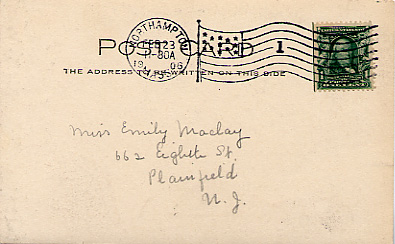 POST CARD
NORTHAMPTON
FEB 23
19 06
MASS.
1
THE ADDRESS TO BE WRITTEN ON THIS SIDE
Miss Emily Maclay
662 Eighth St.
Plainfield
N. J.